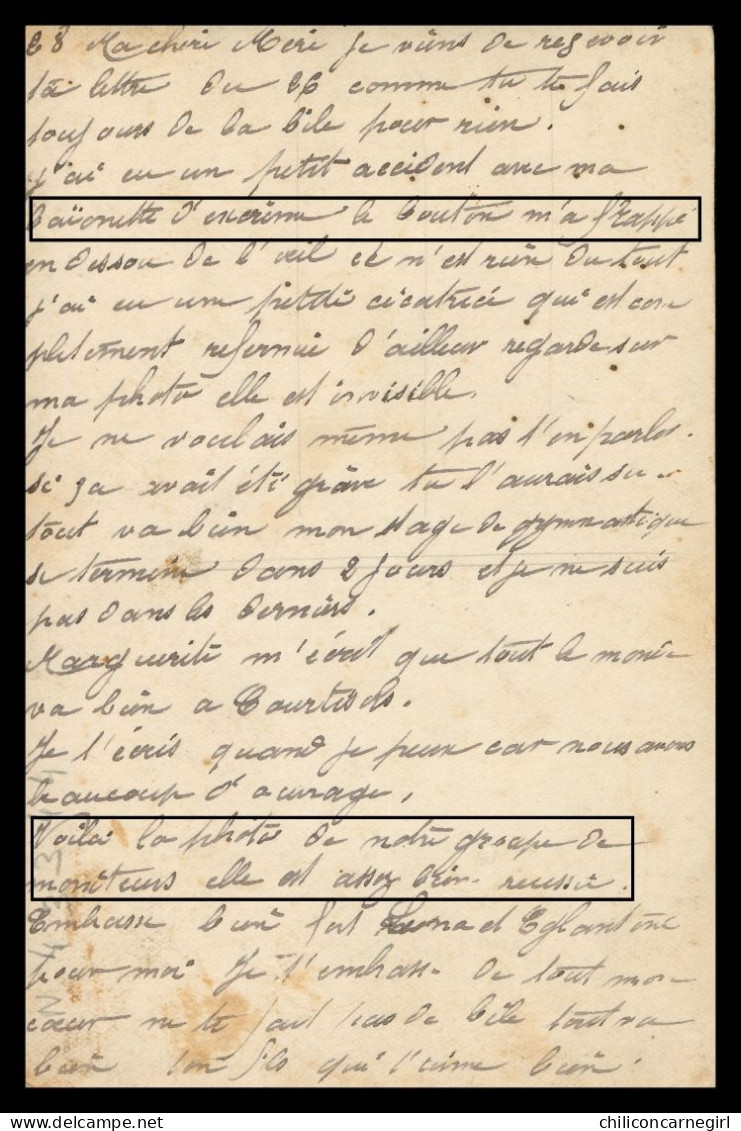 28 Ma cheri Meri je viens de resevoir
ta lettre du 26 comme tu te fais
toujours de la bile pour rien.
j'ai eu un petit accident avec ma
baïonette d'escrime le bouton m'a frappé
en dessou de l'oeil ce n'est rien du tout
j'ai eu une petite cicatrice qui est com
pletement refermé d'ailleur regarde sur
ma photo elle est invisible.
Je ne voulais même pas t'en parler.
si ça avait été grâve tu l'aurais su.
tout va bien mon stage de gymnastique
se termine dans 2 jours et je ne suis
pas dans les derniers.
Marguerite m'écrit que tout le monde
va bien a Courtisols.
Je t'écris quand je peux car nous avons
beaucoup d'ouvrage,
Voila la photo de notre groupe de
moniteurs elle est assez bien reussie.
Embrasse bien fort Leona et Eglantine
pour moi Je t'embrasse de tout mon
coeur ne te fait pas de bile tout va
bien ton fils qui t'aime bien.
chiliconcarnegirl